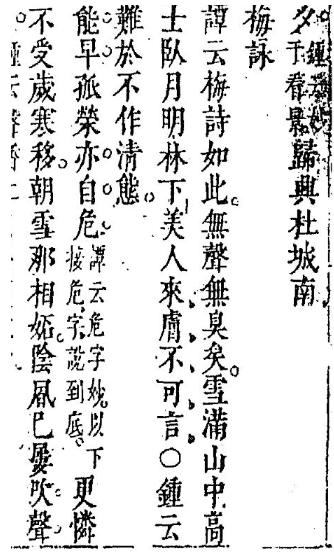 歸興杜城南
梅詠
譚云梅詩如此無聲無臭矣雪滿山中高
士臥月明林下美人來膚不可言○鍾云
難於不作清態
能早孤榮亦自危譚云危字妙以下接危字說到底更憐
不受歲寒移朝雪那相妬陰風已屢吹聲